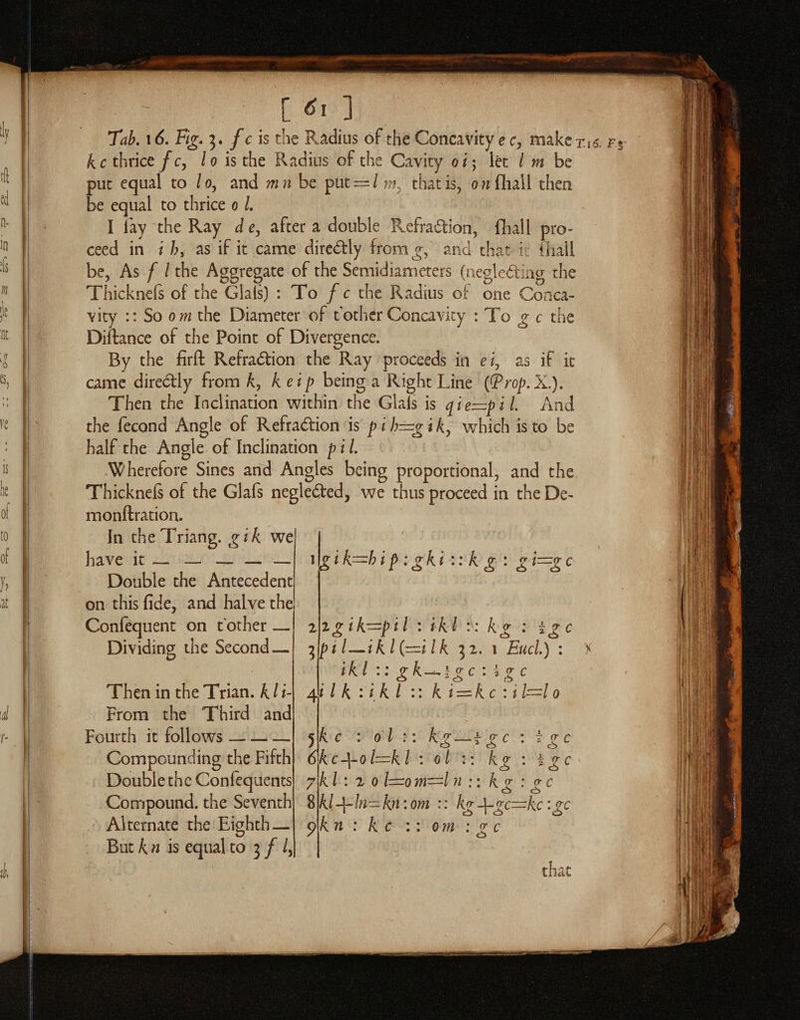 [ 61 ]
Tab. 16. Fig. 3. f c is the Radius of the Concavity e c, make T.16. F3.
k c thrice f c, l o is the Radius of the Cavity o i; let l m be
put equal to l o, and m n be put=l m, that is, o n ſhall then
be equal to thrice o l.
I ſay the Ray d e, after a double Refraction, ſhall pro-
ceed in i h, as if it came directly from g, and that is ſhall
be, As f l the Aggregate of the Semidiameters (neglecting the
Thickneſs of the Glaſs) : To f c the Radius of one Conca-
vity :: So o m the Diameter of t'other Concavity : To g c the
Diſtance of the Point of Divergence.
By the firſt Refraction the Ray proceeds in e i, as if it
came directly from k, k e i p being a Right Line (Prop. X.).
Then the Inclination within the Glaſs is q i e=p i l. And
the ſecond Angle of Refraction is p i h=g i k, which is to be
half the Angle of Inclination p i l.
Wherefore Sines and Angles being proportional, and the
Thickneſs of the Glaſs neglected, we thus proceed in the De-
monſtration.
In the Triang. g i k we
have it — — — — — 1|g i k=h i p : g k i :: k g : g i=g c
Double the Antecedent
on this ſide, and halve the
Conſequent on t'other — 2|2 g i k=p i l : i k l :: k g : ½ g c
Dividing the Second — 3|p i l—i k l (=i l k 32. 1 Eucl.) :
i k l :: g k—½ g c : ½ g c
Then in the Trian. k l i- 4|i l k : i k l :: k i=k c : i l=l o
From the Third and
Fourth it follows — — — 5|k c : o l :: k g—½ g c : ½ g c
Compounding the Fifth 6|k c+o l=k l : o l :: k g : ½ g c
Double the Conſequents 7|k l : 2 o l=o m=l n :: k g : g c
Compound. the Seventh 8|k l+l n=k n : o m :: k g+g c=k c : g c
Alternate the Eighth — 9|k n : k c :: o m : g c
But k n is equal to 3 f l,
that